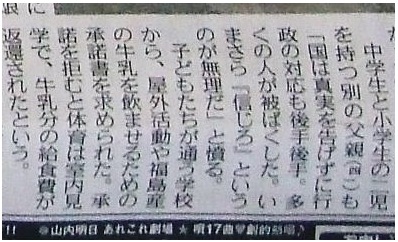 中学生と小学生の二児
を持つ別の父親(四二)も
「国は真実を告げずに行
政の対応も後手後手。多
くの人が被ばくした。い
まさら『信じろ』という
のが無理だ」と憤る。
子どもたちが通う学校
から、屋外活動や福島産
の牛乳を飲ませるための
承諾書を求められた。承
諾を拒むと体育は室内見
学で、牛乳分の給食費が
返還されたという。
に
!! ◎山内明日 あれこれ劇場 ★ 唄17曲♥劇的熱唱♪